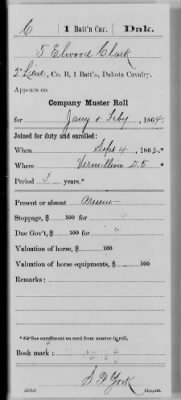 C | 1 Batt'n Cav. | Dak.
T. Elwood Clark
2' Lieut., Co. B, 1 Batt'n, Dakota Cavalry.
Appears on
Company Muster Roll
for Jany & Feby, 1864.
Joined for duty and enrolled:
When Sept 4, 1862.*
Where Vermillion D.T.*
Period 3 years.*
Present or absent Present
Stoppage, $ 100 for
Due Gov't, $ 100 for
Valuation of horse, $ 100
Valuation of horse equipments, $ 100
Remarks:
*See enrollment on card from muster-in roll.
Book mark:
S P York
Copyist.